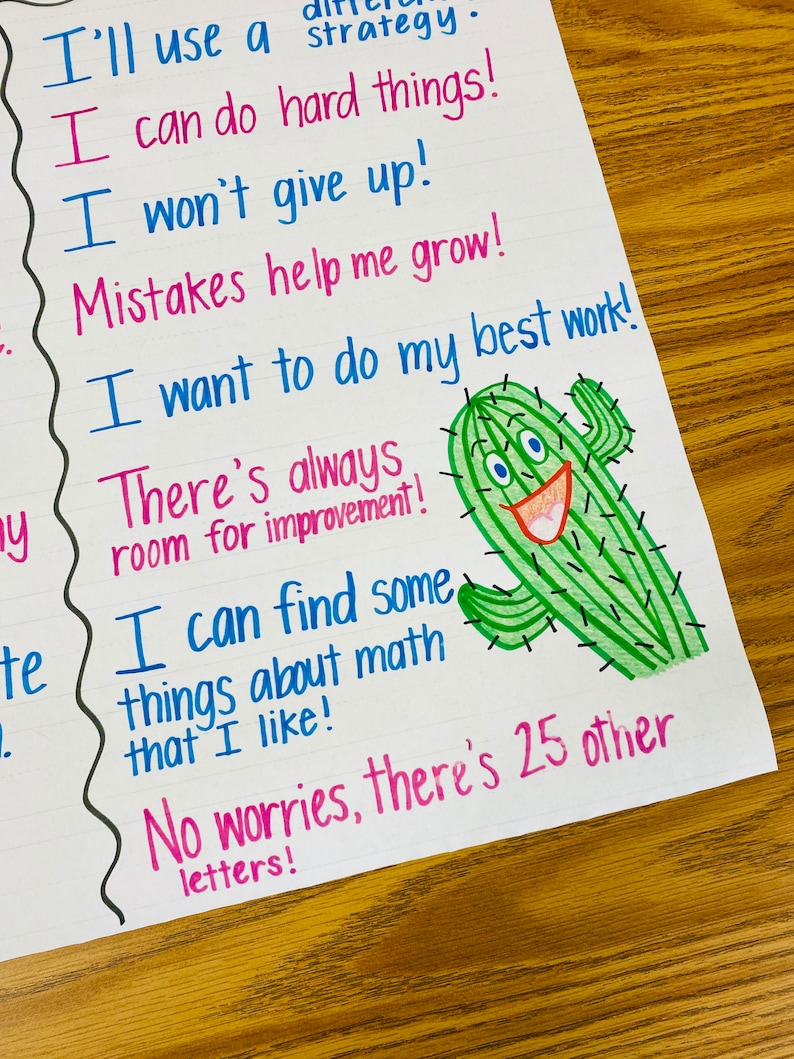 different
I'll use a strategy!
I can do hard things!
I won't give up!
Mistakes help me grow!
I want to do my best work!
There's always
room for improvement!
I can find some
things about math
that I like!
No worries, there's 25 other
letters!